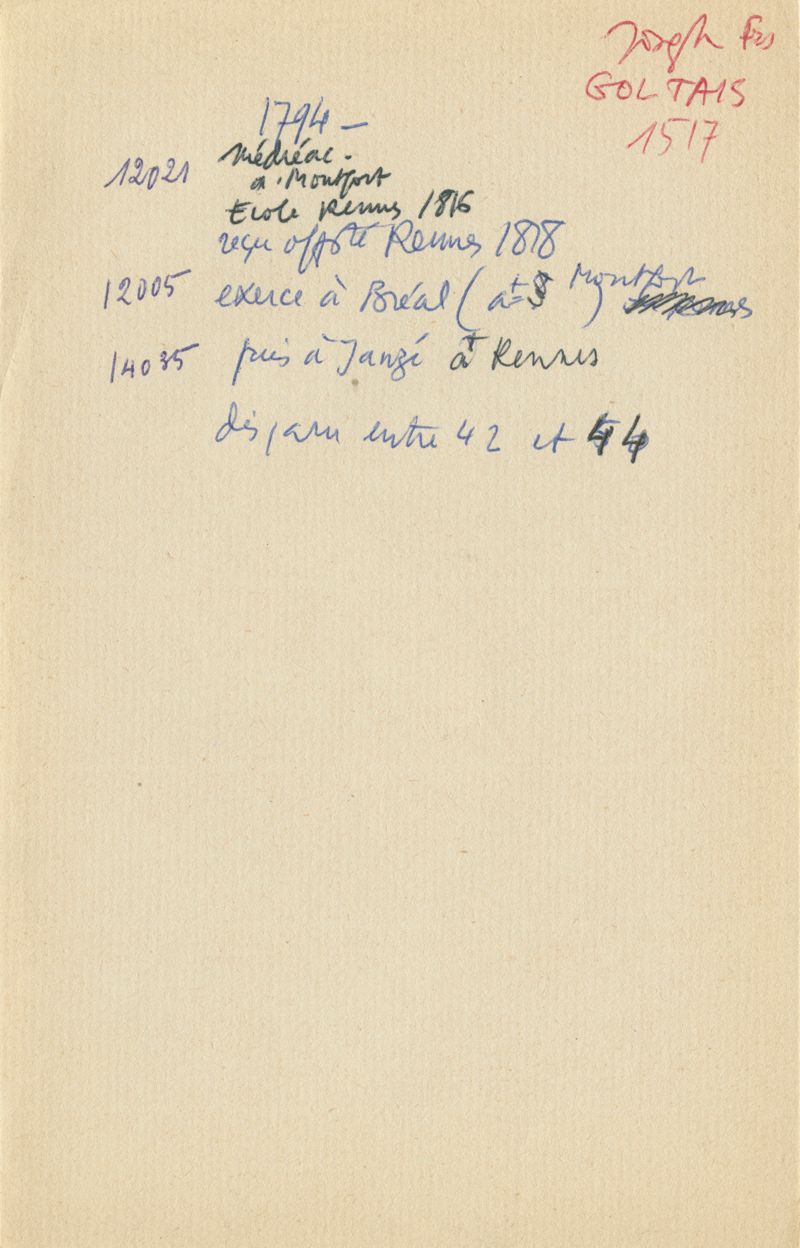 Joseph Fçs
GOLTAIS
1517
1794 –
12021 Médréac.
a. Montfort
Ecole Rennes 1816
reçu offsté Rennes 1818
12005 exerce à Bréal (at= Montfort)
14035 puis à Janzé at Rennes
disparu entre 42 et 44